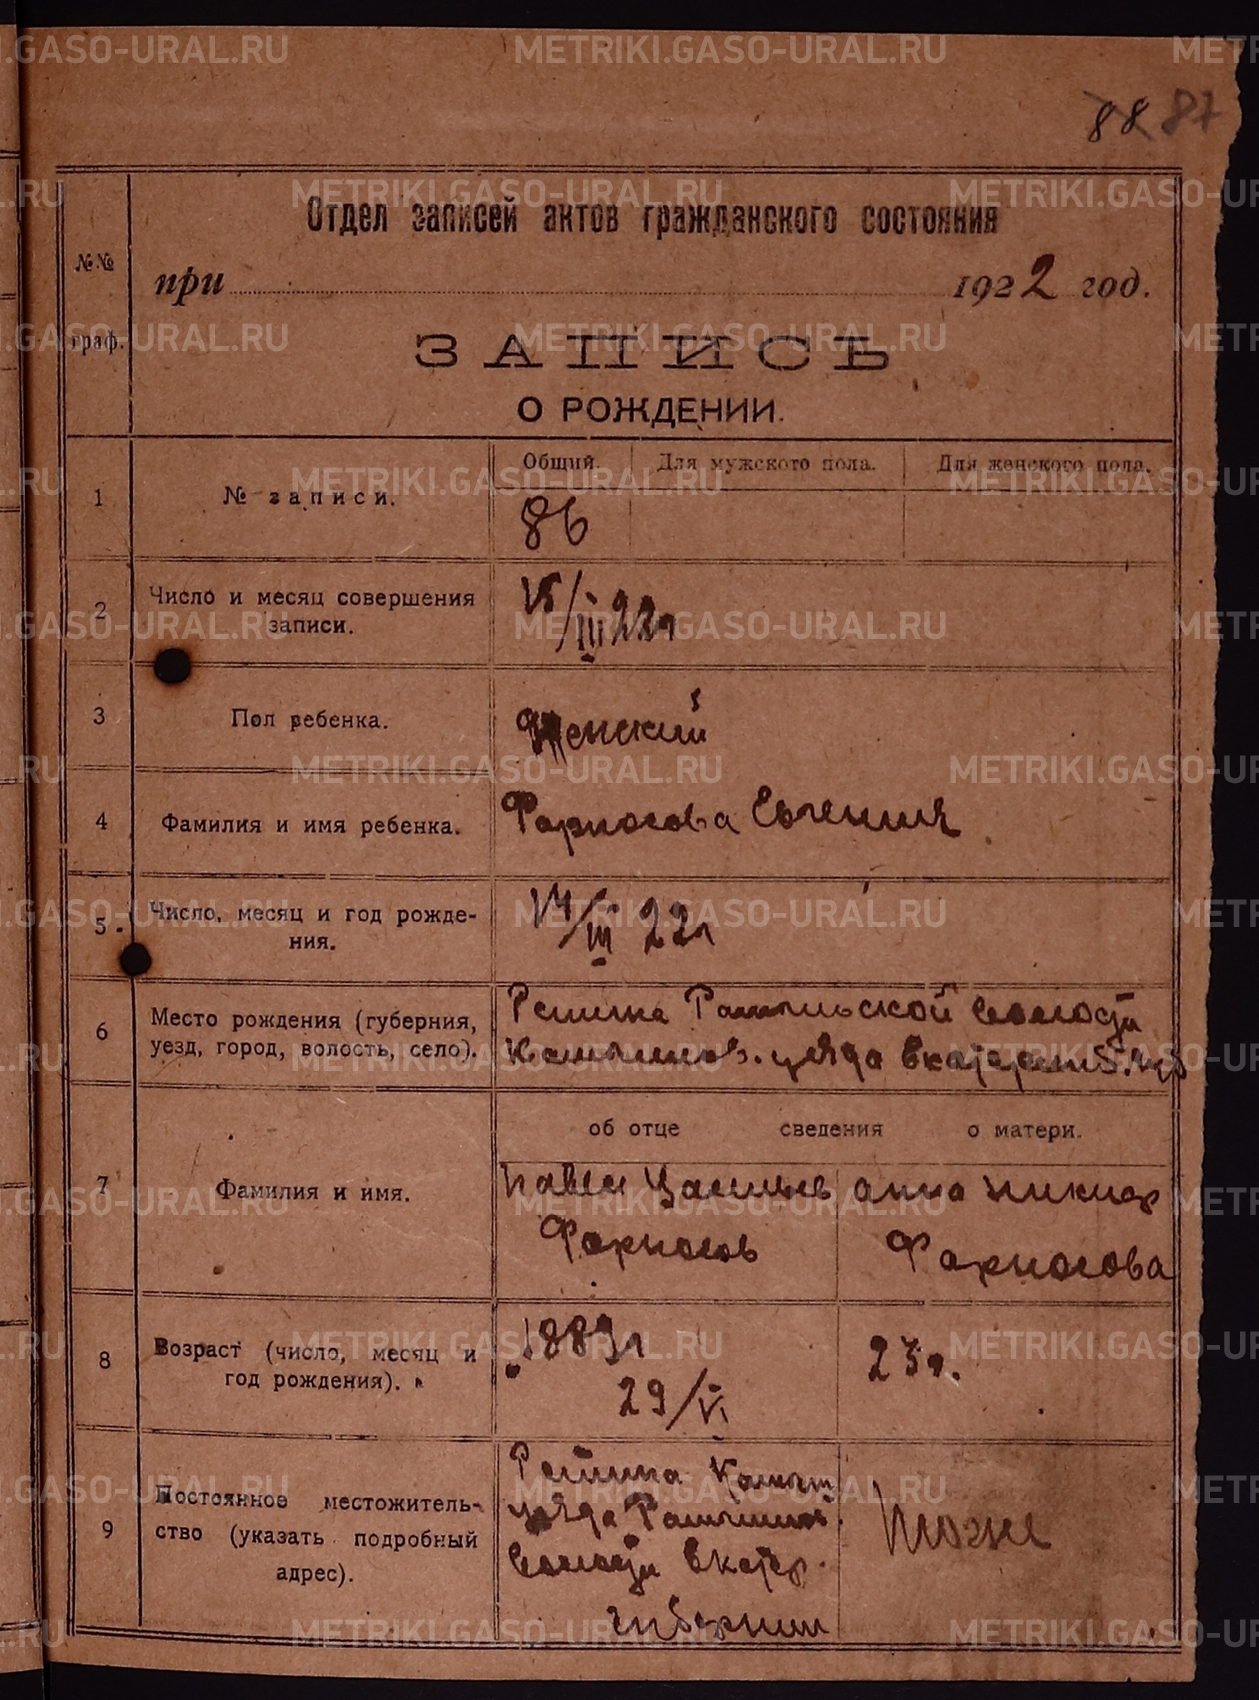 88 87
Отдел записей актов гражданского состояния
№№ граф.
при 1922 год.
ЗАПИСЬ
О РОЖДЕНИИ.
Общий. Для мужского пола. Для женского пола.
1 № записи. 86
2 Число и месяц совершения
записи.
15/III 22г
3 Пол ребенка. Женский
4 Фамилия и имя ребенка. Фарносова Евгения
5. Число, месяц и год рожде-
ния.
14/III 22г
6 Место рождения (губерния,
уезд, город, волость, село).
волости
уезда Екатеринб. губ
об отце сведения о матери.
7 Фамилия и имя.
Павел Анна
Фарносов Фарносова
8 Возраст (число, месяц и
год рождения).
1889г 23 г.
29/VI
9 Постоянное местожитель-
ство (указать подробный
адрес).
уезда
волости Екатер.
губернии
тоже
METRIKI.GASO-URAL.RU